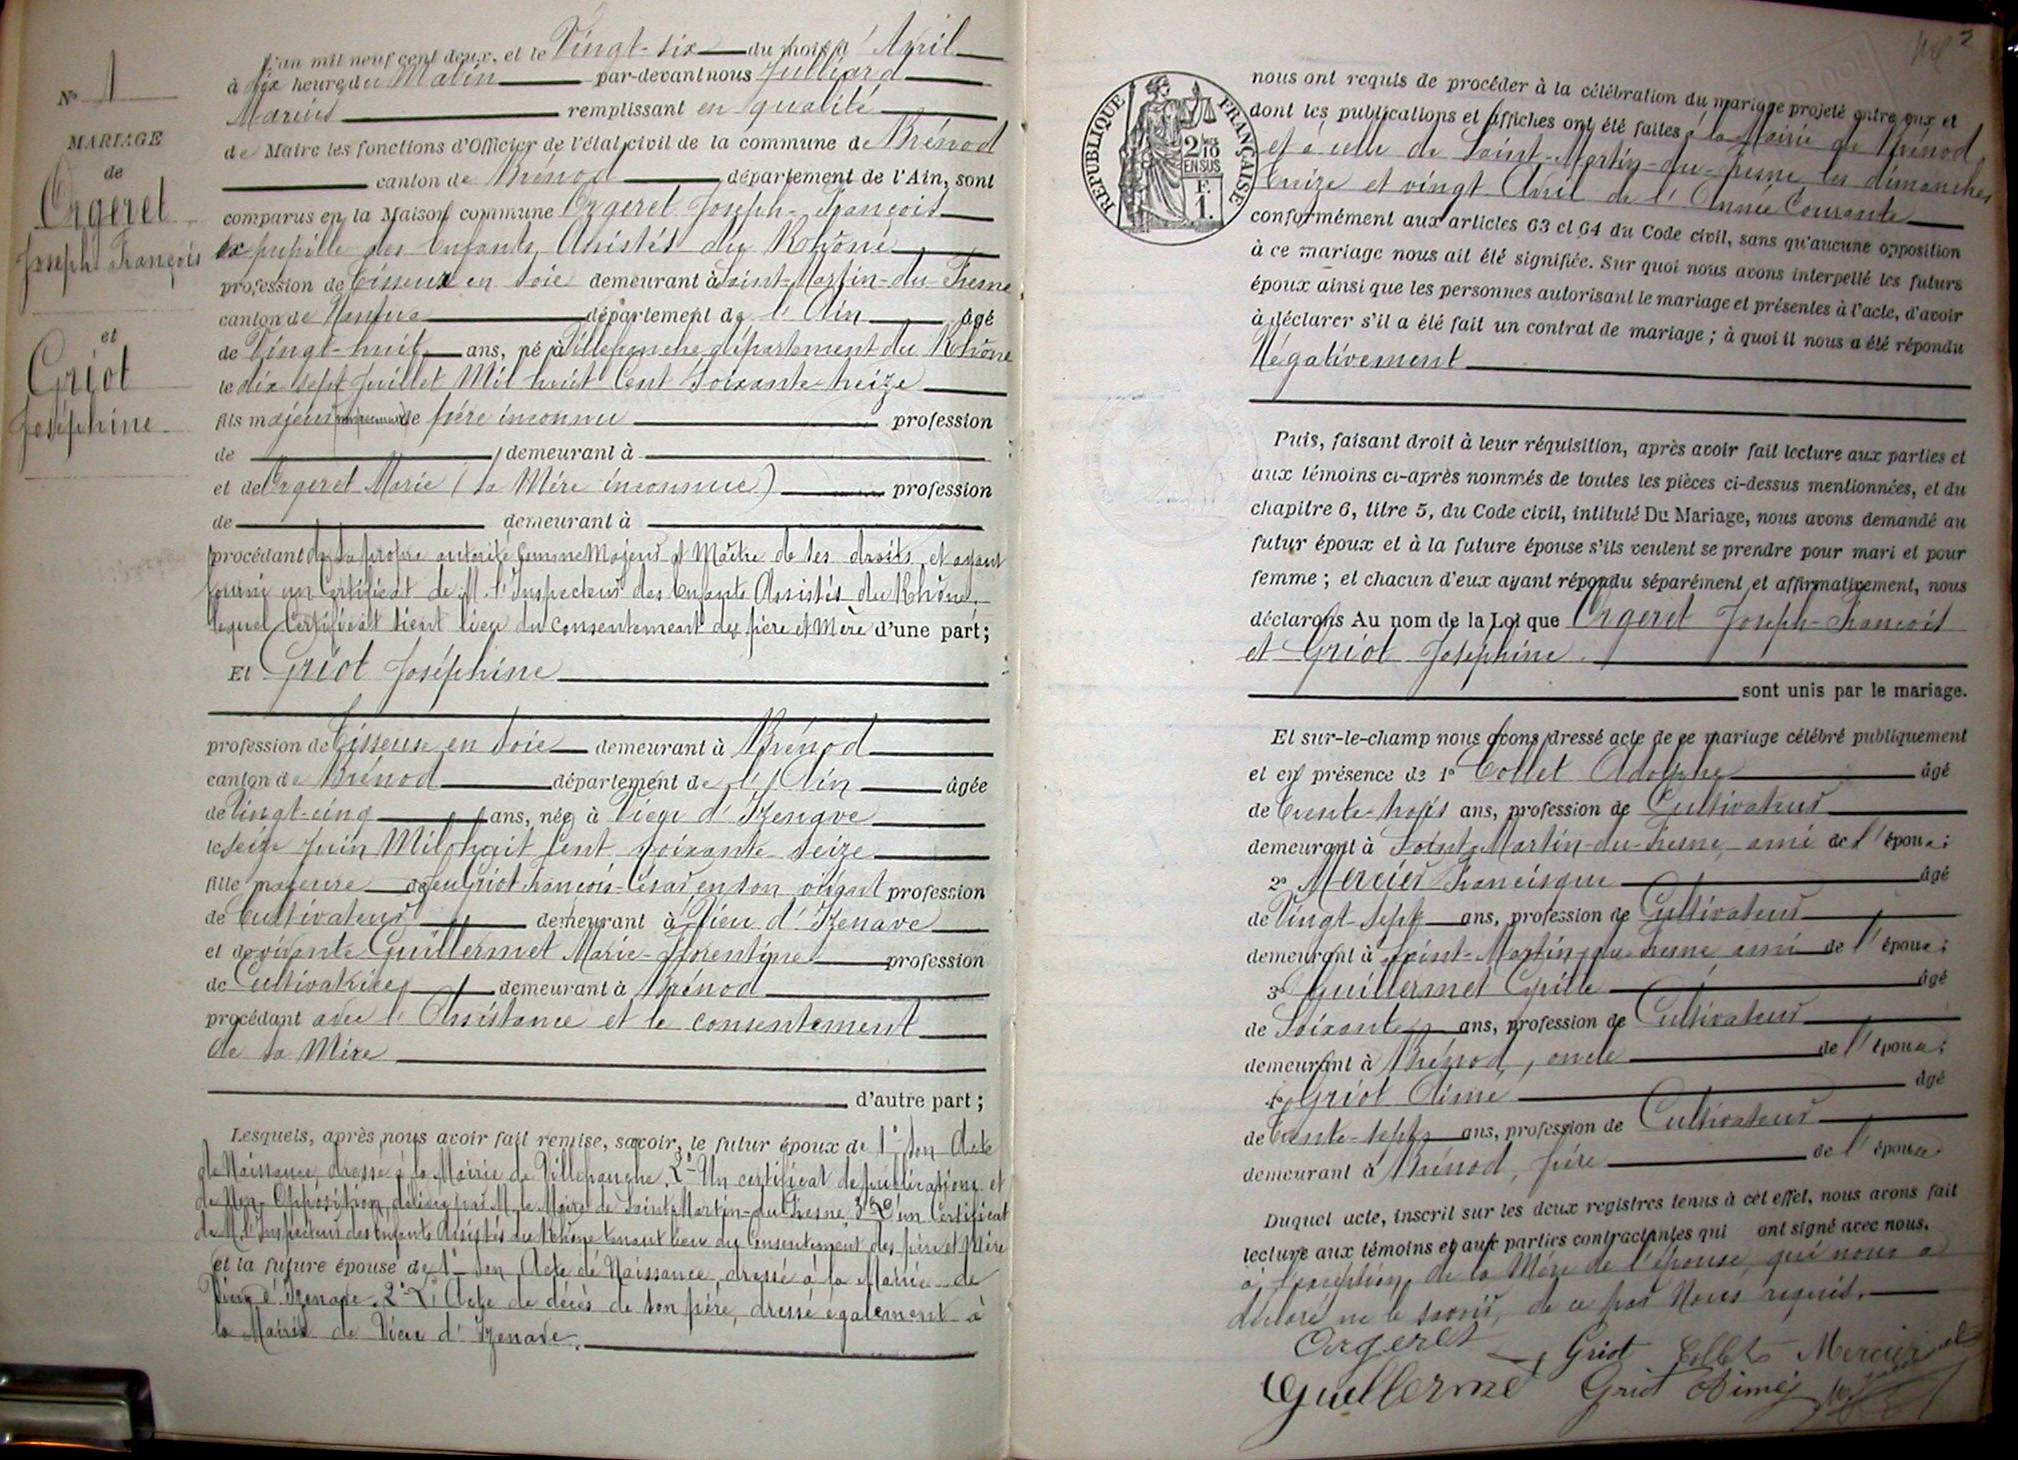 N° 1
MARIAGE
de
Orgeret
Joseph François
et
Griot
Joséphine
L'an mil neuf cent deux, et le Vingt-six du mois d'Avril
à dix heures du Matin par-devant nous Julliard
Marius remplissant en qualité
de Maire les fonctions d'Officier de l'état civil de la commune de Brénod
canton de Brénod département de l'Ain, sont
comparus en la Maison commune Orgeret Joseph-François
ex pupille des Enfants Assistés du Rohône
profession de Tisseur en Soie demeurant à Saint-Martin-du-Fresne
canton de Nantua département de l'Ain âgé
de Vingt-huit ans, né à Villefranche département du Rohône
le dix sept Juillet Mil huit Cent Soixante treize
fils majeur de père inconnu profession
de demeurant à
et de Orgeret Marie (Sa Mère inconnue) profession
de demeurant à
procédant de sa propre autorité comme Majeur et Maître de ses droits et ayant
fourni un Certificat de M. l'Inspecteur des Enfants Assistés du Rhône,
lequel Certificat tient lieu du consentement des père et Mère d'une part;
Et Griot Joséphine
profession de Tisseuse en Soie demeurant à Brénod
canton de Brénod département de l'Ain âgée
de Vingt-cinq ans, née à Vieu d'Izenave
le Seize Juin Mil huit Cent soixante seize
fille majeure de feu Griot François-César en son vivant profession
de Cultivateur demeurant à Vieu d'Izenave
et de vivante Guillermet Marie-Florentine profession
de Cultivatrice demeurant à Brénod
procédant avec l'Assistance et le consentement
de sa Mère
d'autre part;
Lesquels, après nous avoir fait remise, savoir: le futur époux de 1° Son Acte
de Naissance, dressé à la Mairie de Villefranche. 2° Un certificat de publications et
de Non-Opposition, délivré par M. le Maire de Saint-Martin-du-Fresne 3° D'un Certificat
de M. l'Inspecteur des Enfants Assistés du Rhône tenant lieu du Consentement des père et Mère
et la future épouse de 1° Son Acte de Naissance, dressé à la Mairie de
Vieu d'Izenave. 2° L'Acte de décès de son père, dressé également à
la Mairie de Vieu d'Izenave.
2
RÉPUBLIQUE FRANÇAISE
2/10
EN SUS
F.
1.
nous ont requis de procéder à la célébration du mariage projeté entre eux et
dont les publications et affiches ont été faites à la Mairie de Brénod
et à celle de Saint-Martin-du-Fresne les dimanches
treize et vingt Avril de l'Année Courante
conformément aux articles 63 et 64 du Code civil, sans qu'aucune opposition
à ce mariage nous ait été signifiée. Sur quoi nous avons interpellé les futurs
époux ainsi que les personnes autorisant le mariage et présentes à l'acte, d'avoir
à déclarer s'il a été fait un contrat de mariage; à quoi il nous a été répondu
Négativement
Puis, faisant droit à leur réquisition, après avoir fait lecture aux parties et
aux témoins ci-après nommés de toutes les pièces ci-dessus mentionnées, et du
chapitre 6, titre 5, du Code civil, intitulé Du Mariage, nous avons demandé au
futur époux et à la future épouse s'ils veulent se prendre pour mari et pour
femme; et chacun d'eux ayant répondu séparément et affirmativement, nous
déclarons Au nom de la Loi que Orgeret Joseph-François
et Griot Joséphine.
sont unis par le mariage.
Et sur-le-champ nous avons dressé acte de ce mariage célébré publiquement
et en présence de 1° Collet Adolphe âgé
de Trente-trois ans, profession de Cultivateur
demeurant à Saint-Martin-du-Fresne ami de l'époux;
2° Mercier Francisque âgé
de Vingt-sept ans, profession de Cultivateur
demeurant à Saint-Martin-du-Fresne ami de l'époux;
3° Guillermet Cyrille âgé
de Soixante ans, profession de Cultivateur
demeurant à Brénod, oncle de l'épouse;
4° Griot Aimé âgé
de Trente-sept ans, profession de Cultivateur
demeurant à Brénod, frère de l'épouse
Duquel acte, inscrit sur les deux registres tenus à cet effet, nous avons fait
lecture aux témoins et aux parties contractantes qui ont signé avec nous.
à l'exception de la Mère de l'épouse, qui nous a
déclaré ne le savoir, de ce par Nous requis.
Orgeret Griot Collet Mercier
Guillermet Griot Aimé